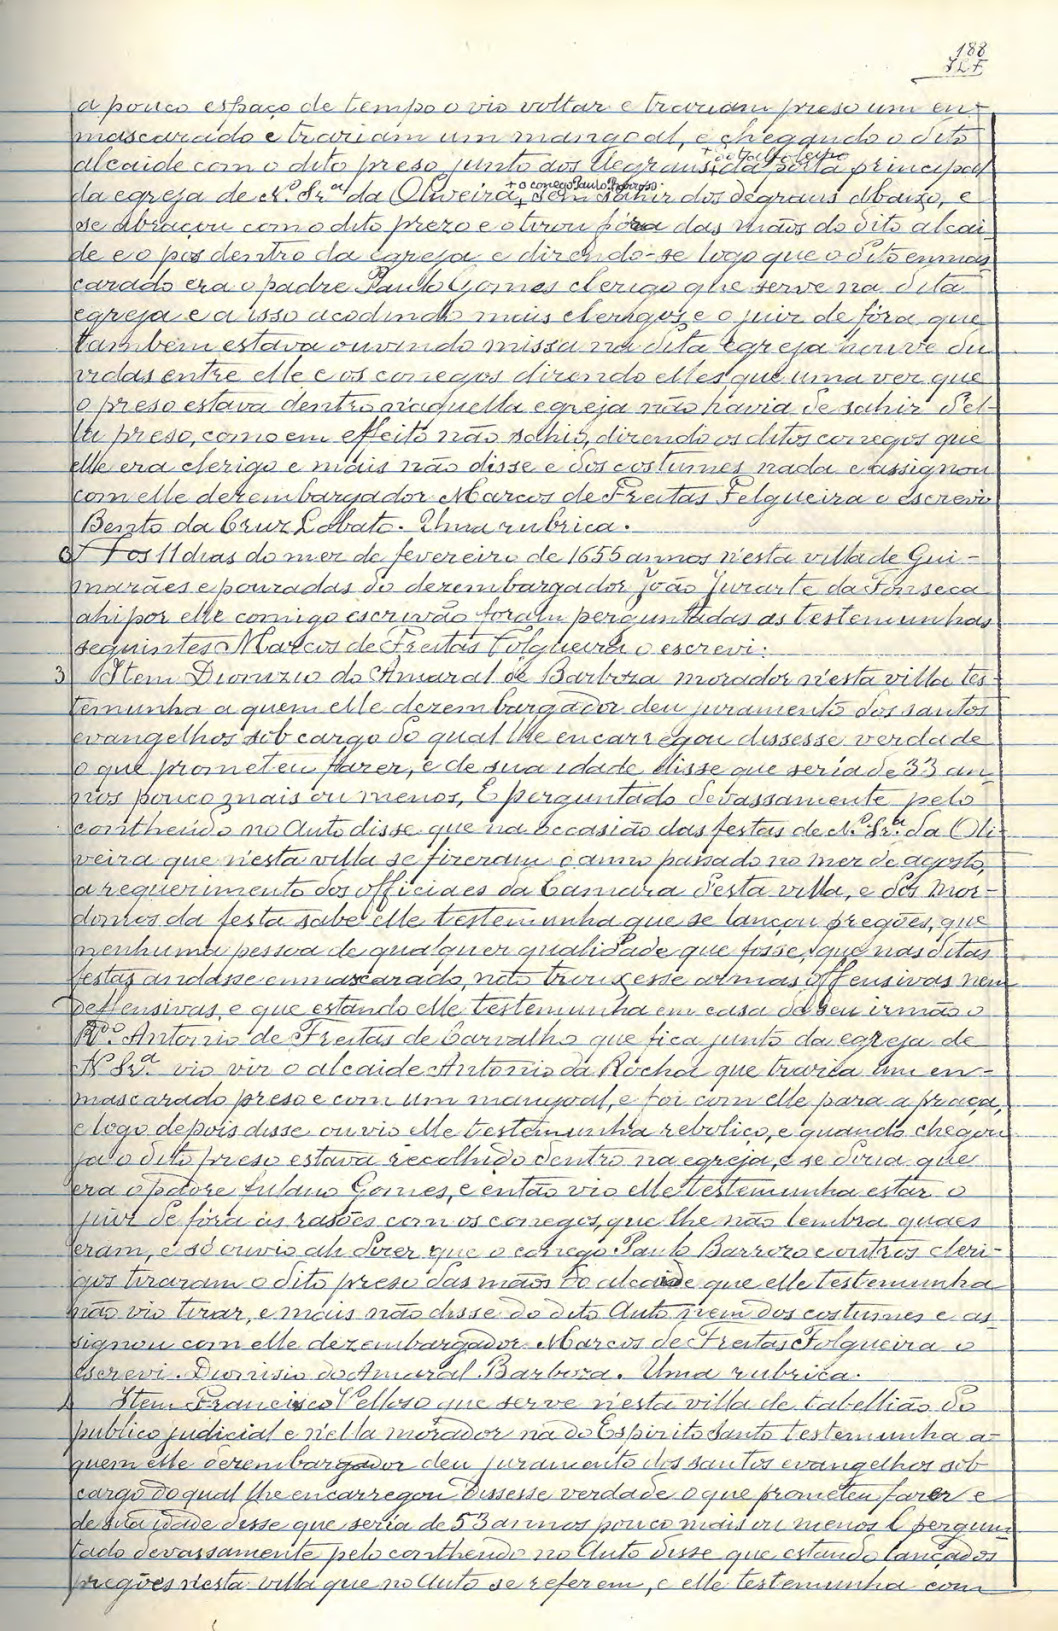 188
a pouco espaço de tempo o vio voltar e traziam preso um en-
mascarado e traziam um mangoal, e chegando o dito
alcaide com o dito preso junto aos degraus + da porta principal
da egreja de N.ª Sr.ª da Oliveira + o conego Paulo Barroso + sem sahir dos degraus abaixo, e
se abraçou com o dito prezo e o tirou fóra das mãos do dito alcai-
de e o pos dentro da egreja e dizendo-se logo que o dito enmas-
carado era o padre Paulo Gomes clerigo que serve na dita
egreja e a isso acodindo mais clerigos, e o juiz de fóra que
tambem estava ouvindo missa na dita egreja houve du-
vidas entre elle e os conegos dizendo elles que uma vez que
o preso estava dentro n'aquella egreja não havia de sahir del-
la preso, como em effeito não sahio, dizendo os ditos conegos que
elle era clerigo e mais não disse e dos costumes nada e assignou
com elle dezembargador Marcos de Freitas Felgueira o escrevi
Bento da Cruz Lobato. Uma rubrica.
Aos 11 dias do mez de fevereiro de 1655 annos n'esta villa de Gui-
marães e pouzadas do dezembargador João Jurarte da Fonseca
ahi por elle comigo escrivão foram perguntadas as testemunhas
seguintes Marcos de Freitas Folgueira o escrevi:
3 Item Dionizio do Amaral de Barboza morador n'esta villa tes-
temunha a quem elle dezembargador deu juramento dos santos
evangelhos sob cargo do qual lhe encarregou dissesse verdade
o que prometeu fazer, e de sua idade disse que seria de 33 an-
nos pouco mais ou menos, E perguntado devassamente pelo
conthendo no Auto disse que na occasião das festas de N.ª Sr.ª da Oli-
veira que n'esta villa se fizeram o anno passado no mez de agosto,
a requerimento dos officiaes da Camara desta villa, e dos mor-
domos da festa sabe elle testemunha que se lançou pregões, que
nenhuma pessoa de qualquer qualidade que fosse, que nas ditas
festas andasse enmascarado, não trouxesse armas offensivas nem
deffensivas, e que estando elle testemunha em casa do seu irmão o
R.do Antonio de Freitas de Carvalho que fica junto da egreja de
N. Sr.ª vio vir o alcaide Antonio da Rocha que trazia um en-
mascarado preso e com um mangoal, e foi com elle para a praça,
e logo depois disse ouvio elle testemunha reboliço, e quando chegou
ja o dito preso estava recolhido dentro na egreja, e se dizia que
era o padre fulano Gomes, e então vio elle testemunha estar o
juiz de fóra ás rasões com os conegos, que lhe não lembra quaes
eram, e só ouvio ah dizer que o conego Paulo Barrozo e outros cleri-
gos tiraram o dito preso das mãos do alcaide que elle testemunha
não vio tirar, e mais não disse do dito Auto nem dos costumes e as-
signou com elle dezembargador Marcos de Freitas Folgueira o
escrevi. Dionisio do Amaral Barboza. Uma rubrica.
4 Item Francisco Velloso que serve n'esta villa de tabellião do
publico judicial e n'ella morador na do Espirito Santo testemunha a
quem elle dezembargador deu juramento dos santos evangelhos sob
cargo do qual lhe encarregou dissesse verdade o que prometeu fazer e
de sua idade disse que seria de 53 annos pouco mais ou menos E pergun-
tado devassamente pelo conthendo no Auto disse que estando lançados
pregões n'esta villa que no Auto se referem, e elle testemunha com